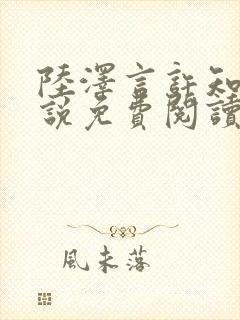 陸澤言許知
說免費閱讀
風未落